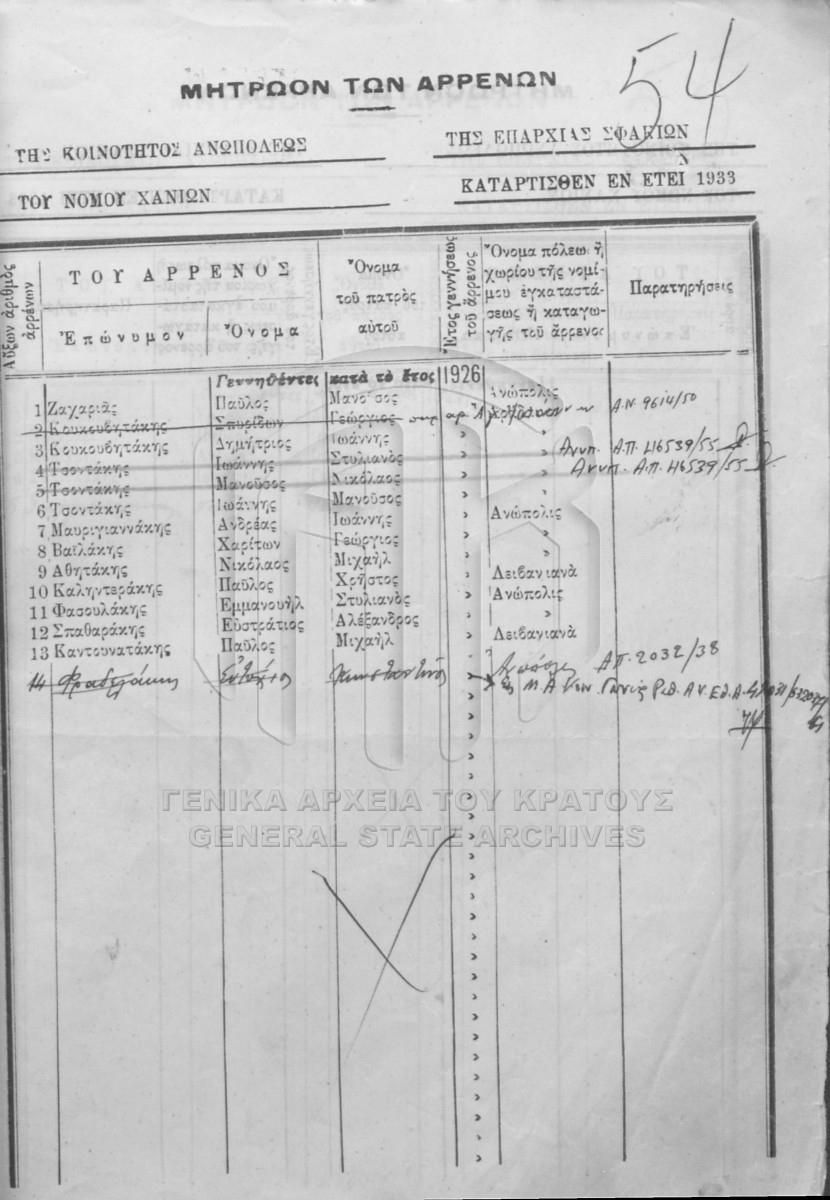 54
ΜΗΤΡΩΟΝ ΤΩΝ ΑΡΡΕΝΩΝ
ΤΗΣ ΚΟΙΝΟΤΗΤΟΣ ΑΝΩΠΟΛΕΩΣ
ΤΗΣ ΕΠΑΡΧΙΑΣ ΣΦΑΚΙΩΝ
ΤΟΥ ΝΟΜΟΥ ΧΑΝΙΩΝ
ΚΑΤΑΡΤΙΣΘΕΝ ΕΝ ΕΤΕΙ 1933
Αὔξων ἀριθμὸς ἀρρένων
ΤΟΥ ΑΡΡΕΝΟΣ
Ἐπώνυμον
Ὄνομα
Ὄνομα τοῦ πατρὸς αὐτοῦ
Ἔτος γεννήσεως τοῦ ἄρρενος
Ὄνομα πόλεω ἢ χωρίου τῆς νομίμου ἐγκαταστάσεως ἢ καταγωγῆς τοῦ ἄρρενος
Παρατηρήσεις
Γεννηθέντες κατὰ τὸ ἔτος 1926
1 Ζαχαριᾶς Παῦλος Μανοῦσος » Ἀνώπολις
2 Κουκουβητάκης Σπυρίδων Γεώργιος Α.Ν. 9614/50
3 Κουκουβητάκης Δημήτριος Ἰωάννης » »
4 Τσοντάκης Ἰωάννης Στυλιανὸς » » Ανυπ. Α.Π. 46539/55
5 Τσοντάκης Μανοῦσος Νικόλαος » » Ανυπ. Α.Π. 46539/55
6 Τσοντάκης Ἰωάννης Μανοῦσος » Ἀνώπολις
7 Μαυριγιαννάκης Ἀνδρέας Ἰωάννης » »
8 Βαϊλάκης Χαρίτων Γεώργιος » »
9 Ἀθητάκης Νικόλαος Μιχαὴλ » Λειβανιανὰ
10 Καληντεράκης Παῦλος Χρῆστος » Ἀνώπολις
11 Φασουλάκης Ἐμμανουὴλ Στυλιανὸς » »
12 Σπαθαράκης Εὐστράτιος Ἀλέξανδρος » Λειβανιανὰ
13 Καντουνατάκης Παῦλος Μιχαὴλ »
14 Ἀνώπολις Α.Π. 2032/38
ΓΕΝΙΚΑ ΑΡΧΕΙΑ ΤΟΥ ΚΡΑΤΟΥΣ
GENERAL STATE ARCHIVES